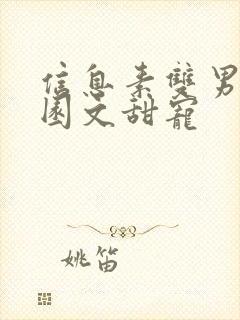 信息素雙男
園文甜寵
姚笛